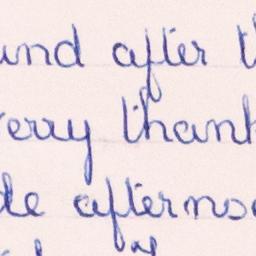 und after t
erry thank
de afterno